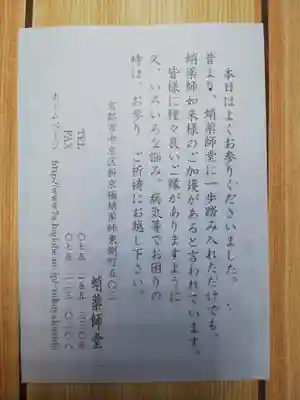 本日はよくお参りくださいました。
昔より、蛸薬師堂に一歩踏み入れただけでも、
蛸薬師如来様のご加護があると言われています。
皆様に種々良いご縁がありますように
又、いろいろな悩み、病気等でお困りの
時は、お参り、ご祈祷にお越し下さい。
京都市中京区新京極蛸薬師東側町五〇三
蛸薬師堂
TEL 〇七五
FAX 〇七五
ホームページ